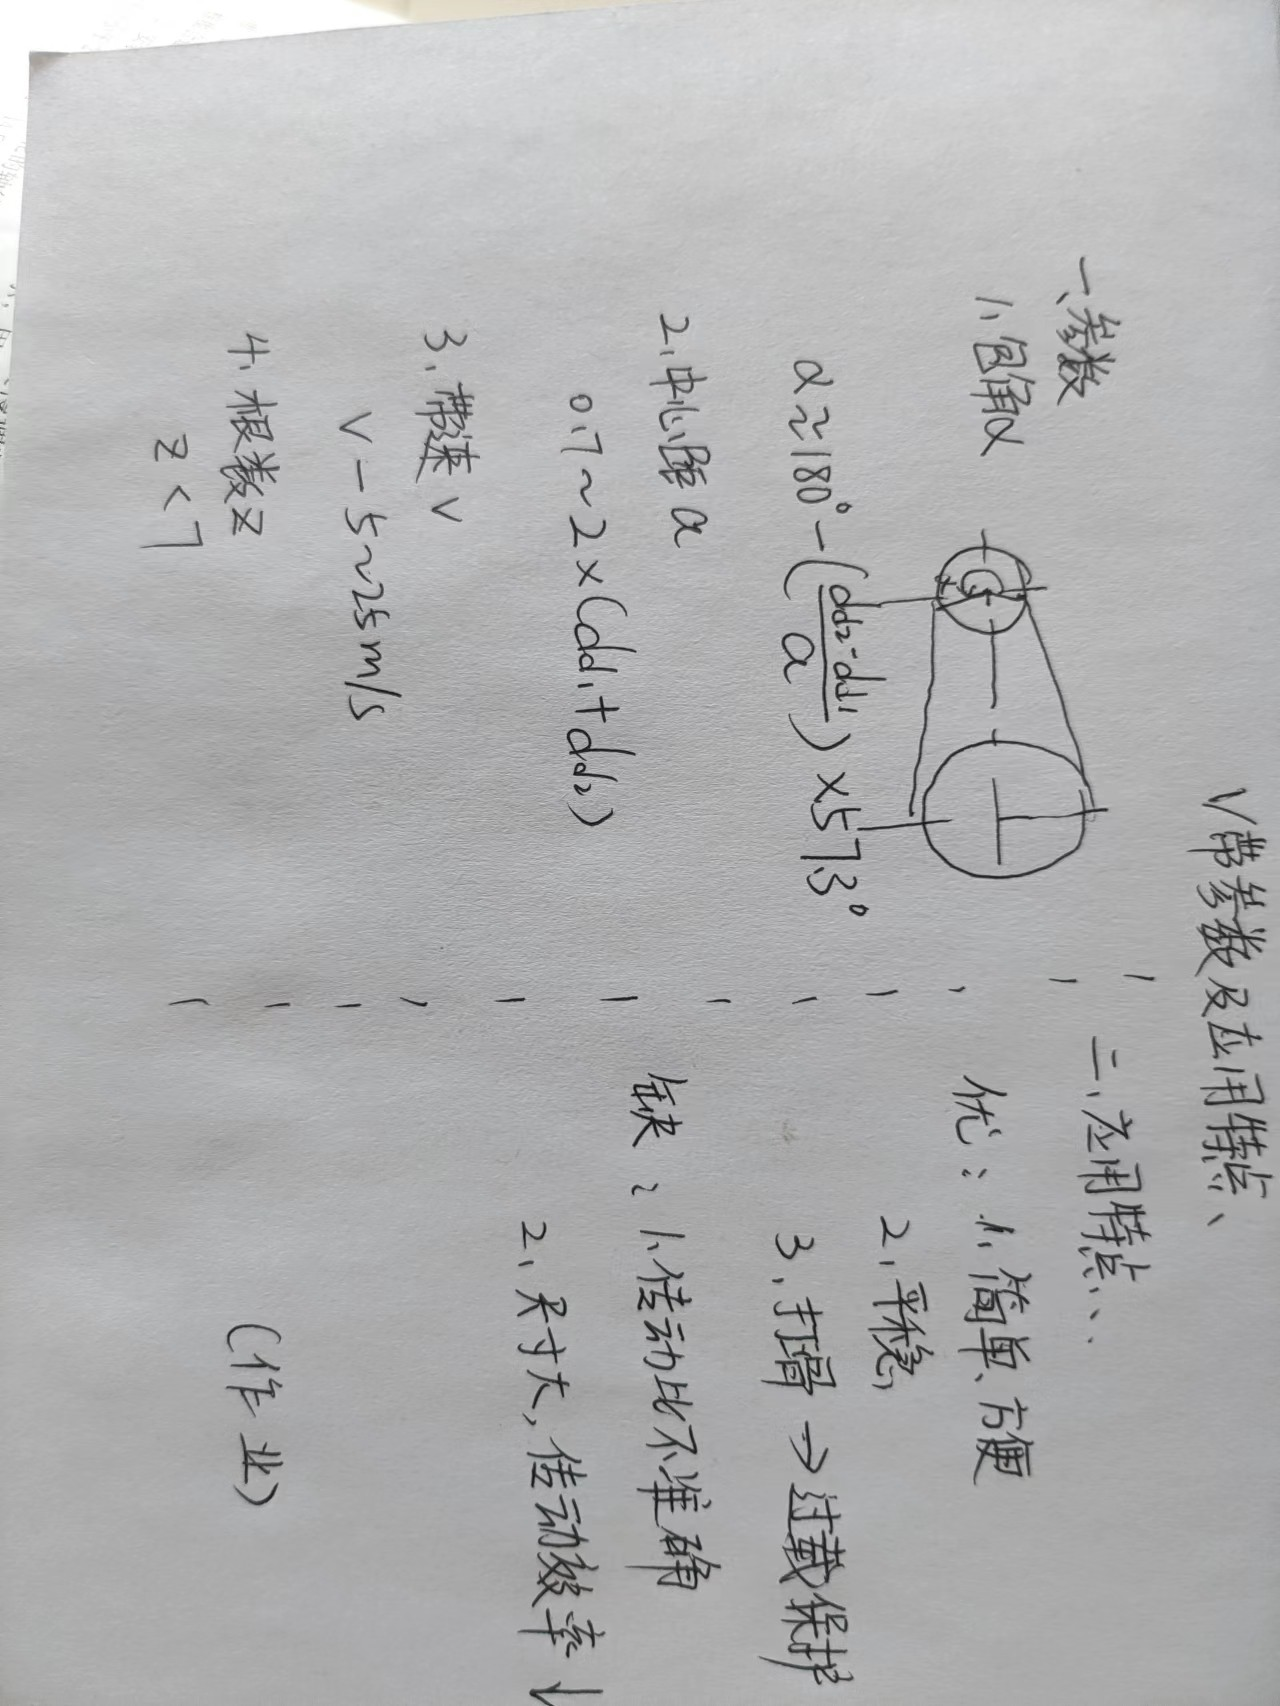 V带参数及应用特点、
一、参数
1、包角α
α≈180°-(dd2-dd1/a)×57.3°
2、中心距a
0.7~2×(dd1+dd2)
3、带速V
V-5~25m/s
4、根数Z
Z<7
二、应用特点、、
优：1、简单、方便
2、平稳
3、打滑→过载保护
缺：1、传动比不准确
2、尺寸大，传动效率↓
(作业)